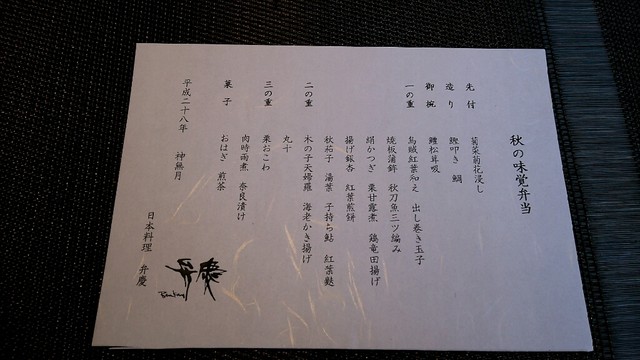 秋の味覚弁当
先付 菊菜菊花浸し
造り 鰹叩き 鯛
御椀 鱧松茸吸
一の重 烏賊紅葉和え 出し巻き玉子
焼板蒲鉾 秋刀魚三ツ編み
絹かつぎ 栗甘露煮 鶏竜田揚げ
揚げ銀杏 紅葉煎餅
二の重 秋茄子 湯葉 子持ち鮎 紅葉麩
木の子天婦羅 海老かき揚げ
丸十
三の重 栗おこわ
肉時雨煮 奈良漬け
菓子 おはぎ 煎茶
平成二十八年 神無月
日本料理 弁慶
弁慶
Benkay